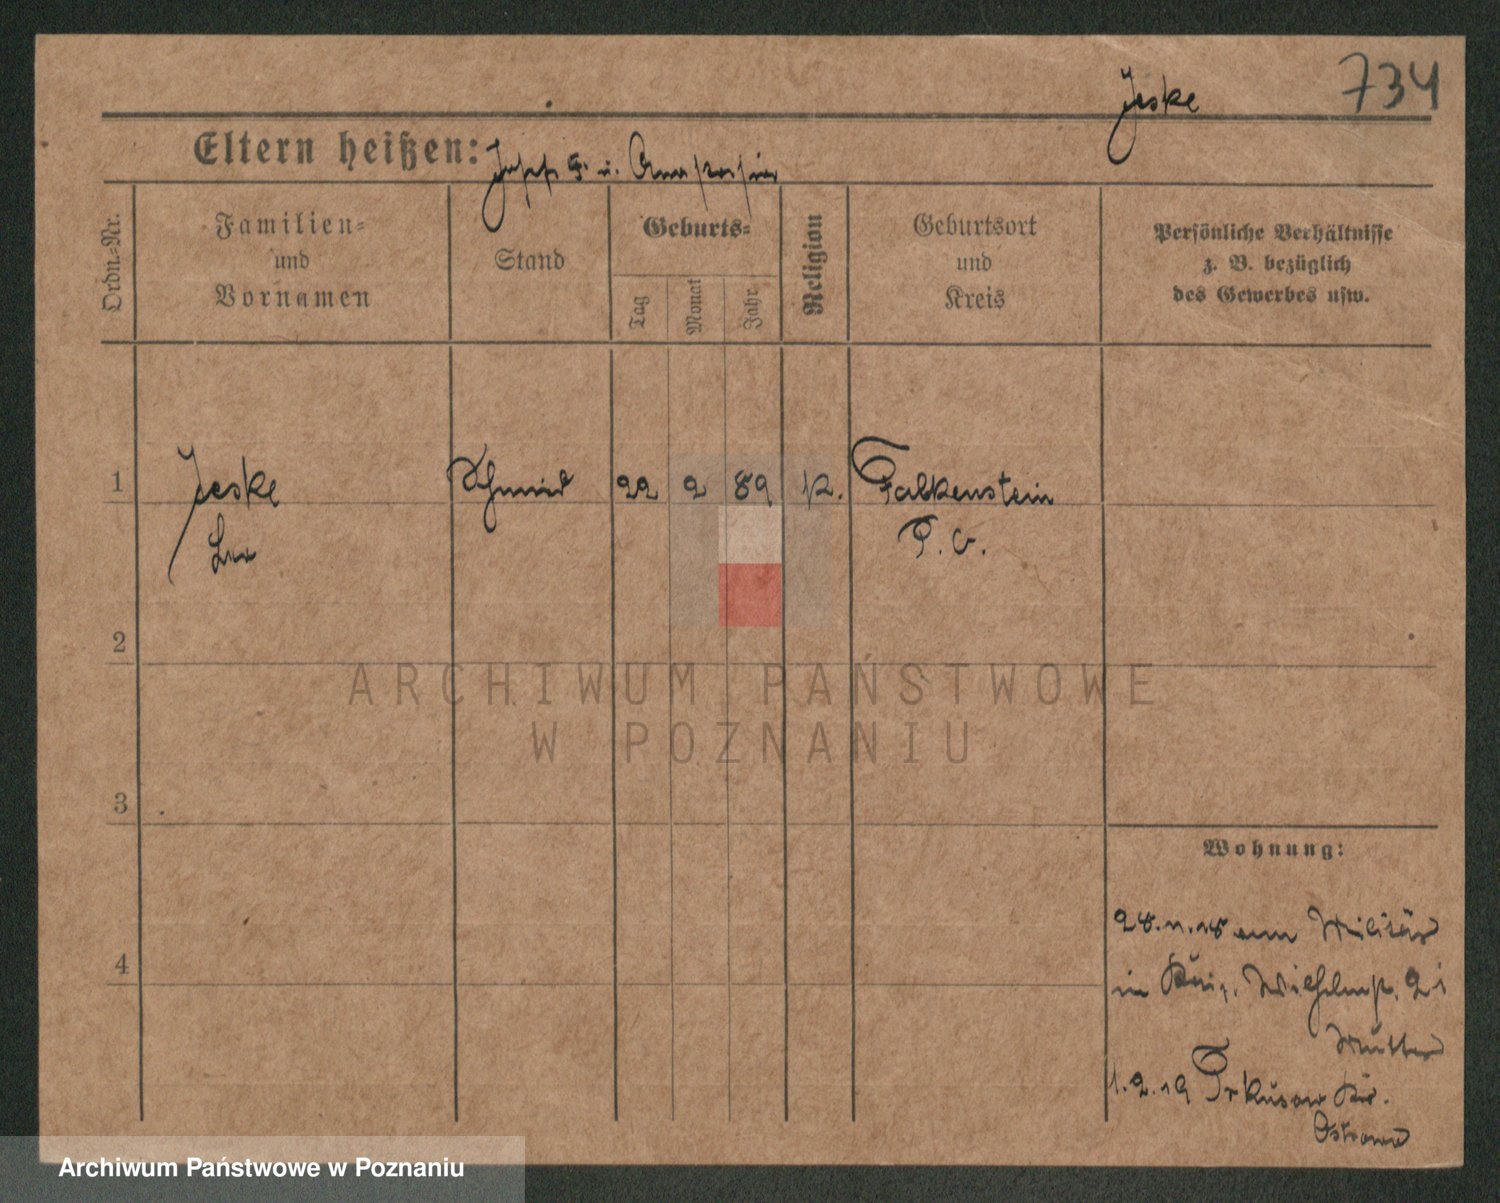 734
Jeske
Eltern heißen: Josef F. u.
Ordn.-Nr.
Familien-
und
Vornamen
Stand
Geburts-
Tag
Monat
Jahr
Religion
Geburtsort
und
Kreis
Persönliche Verhältnisse
z. B. bezüglich
des Gewerbes usw.
1 Jeske Schmied 22 2 89 K. Falkenstein
Leo
2
3
4
ARCHIWUM PAŃSTWOWE
W POZNANIU
Wohnung:
28.11.18 vom Militär
in 21
Mutter
1.2.19
Ostrowo
Archiwum Państwowe w Poznaniu